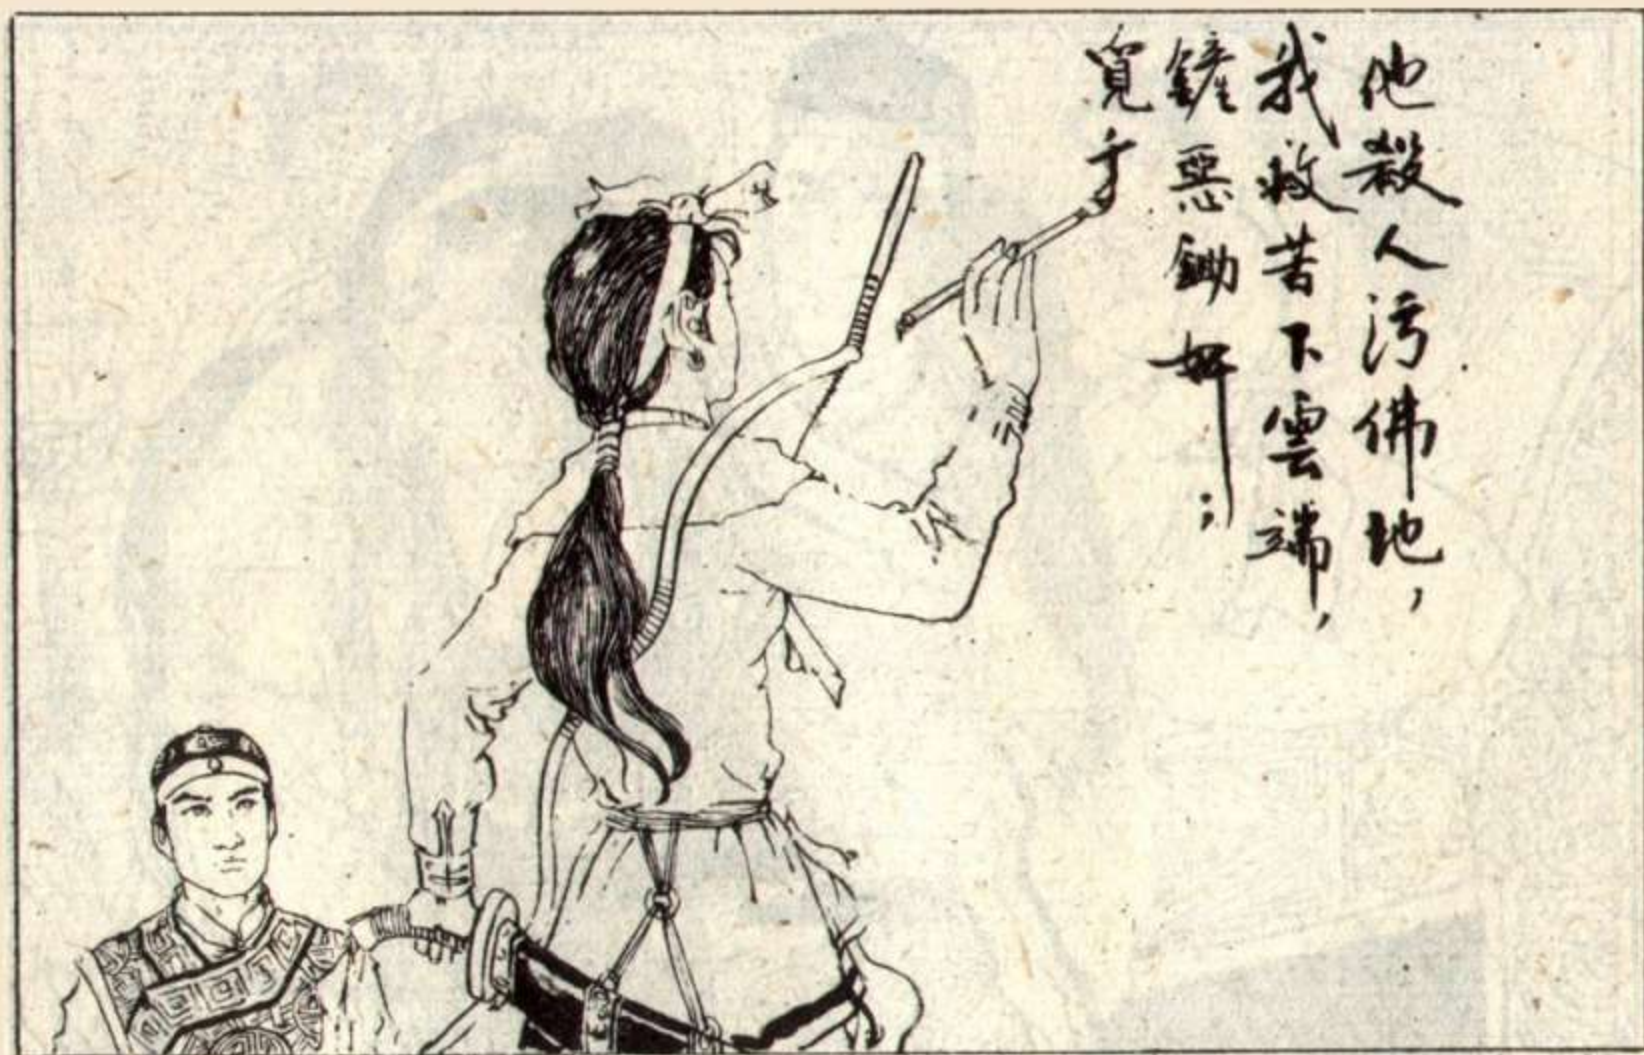 他殺人污佛地，
我救苦下雲端，
鏟惡鋤奸；
覓